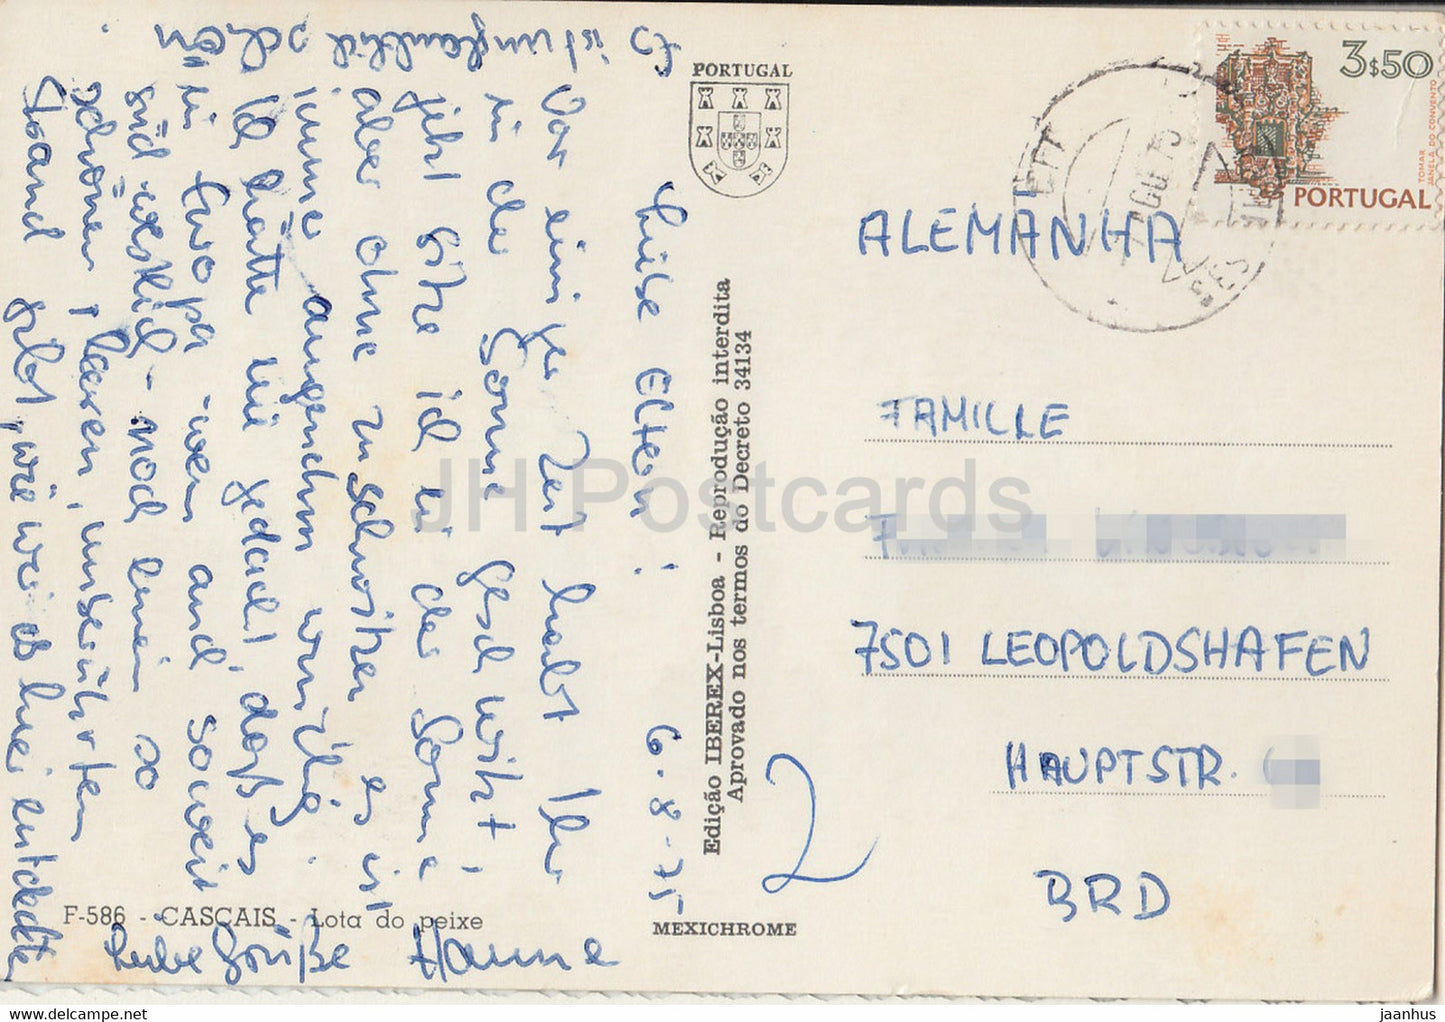 PORTUGAL
3$50
PORTUGAL
TOMAR
JANELA DO CONVENTO
ALEMANHA
FAMILLE
7501 LEOPOLDSHAFEN
HAUPTSTR.
BRD
Edição IBEREX-Lisboa - Reprodução interdita
Aprovado nos termos do Decreto 34134
MEXICHROME
F-586 - CASCAIS - Lota do peixe
2
6.8.75
Liebe Eltern!
Vor einiger Zeit habt Ihr
in der Sonne geschwitzt,
jetzt sitze ich in der Sonne
aber ohne zu schwitzen es ist
immer angenehm windig.
Ich hätte nie gedacht, daß es
in Europa - wenn auch soweit
südwestlich - noch einen so
schönen, leeren, unberührten
Strand gibt, wie wir ihn hier entdeckten
Es ist unglaublich schön
Liebe Grüße Hanne
JH Postcards
jaanhus